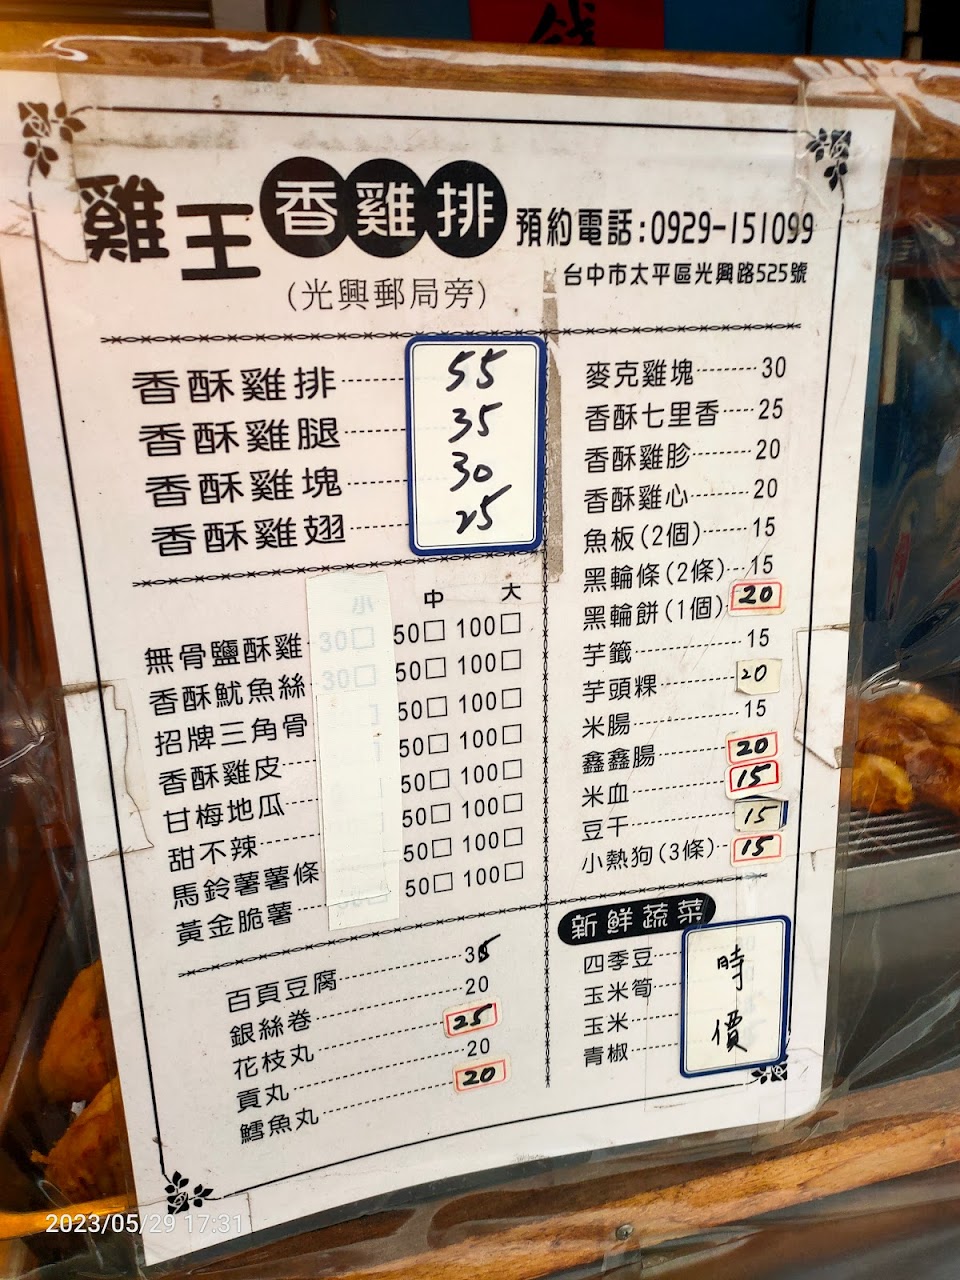 錢
雞王 香雞排 預約電話:0929-151099
(光興郵局旁) 台中市太平區光興路525號
香酥雞排 55
香酥雞腿 35
香酥雞塊 30
香酥雞翅 25
小 中 大
無骨鹽酥雞 30□ 50□ 100□
香酥魷魚絲 30□ 50□ 100□
招牌三角骨 50□ 100□
香酥雞皮 50□ 100□
甘梅地瓜 50□ 100□
甜不辣 50□ 100□
馬鈴薯薯條 50□ 100□
黃金脆薯 50□ 100□
百頁豆腐 35
銀絲卷 20
花枝丸 25
貢丸 20
鱈魚丸 20
麥克雞塊 30
香酥七里香 25
香酥雞胗 20
香酥雞心 20
魚板(2個) 15
黑輪條(2條) 15
黑輪餅(1個) 20
芋籤 15
芋頭粿 20
米腸 15
鑫鑫腸 20
米血 15
豆干 15
小熱狗(3條) 15
新鮮蔬菜
四季豆
玉米筍
玉米
青椒
時價
2023/05/29 17:31